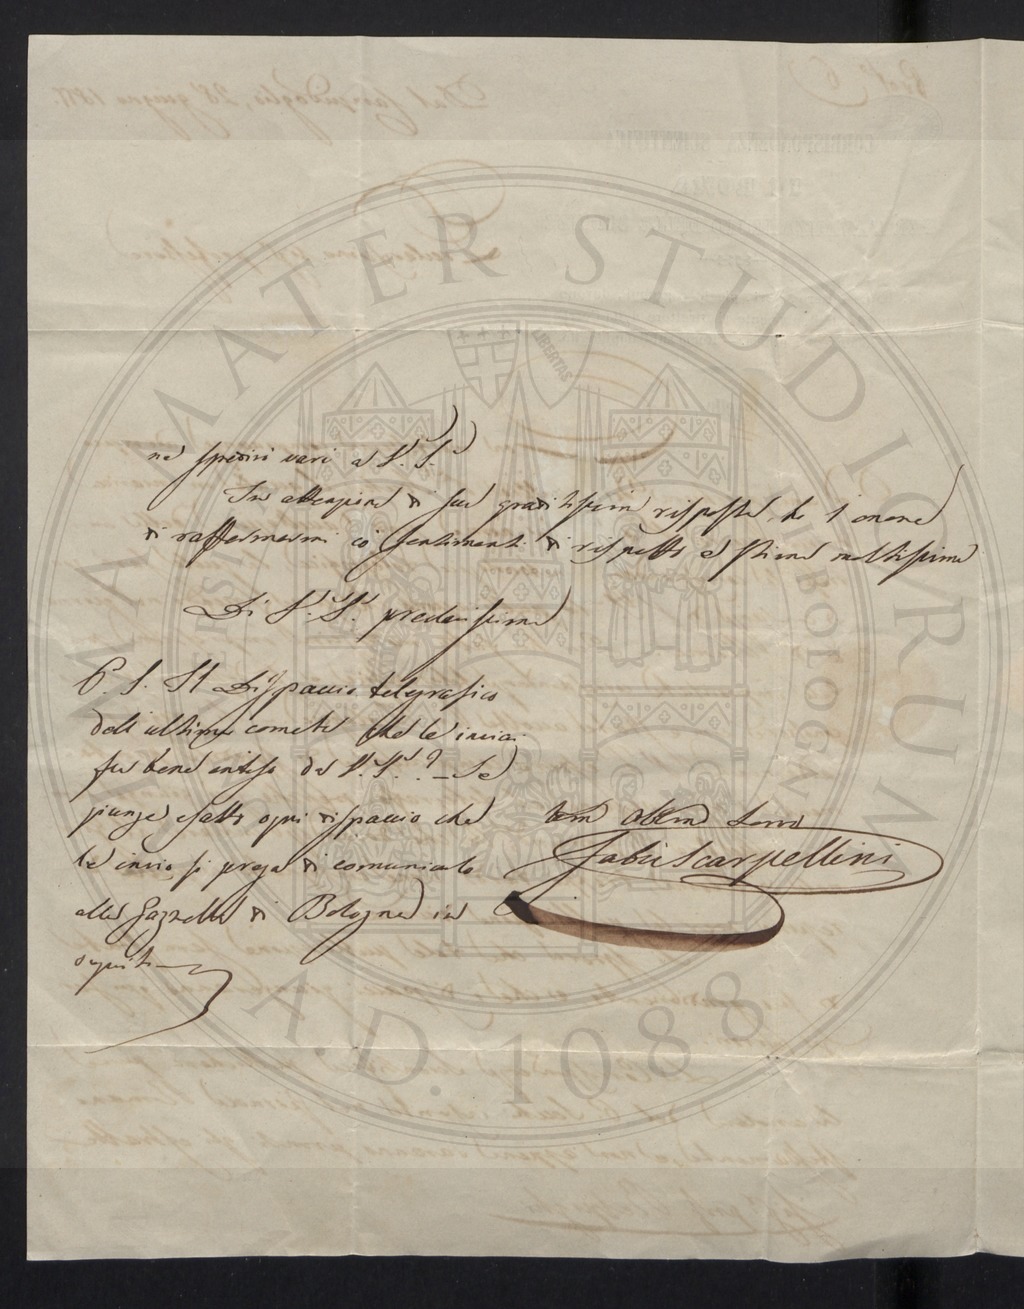 ne spedirò vari a V. S.
In attenzione di sue graditissime risposte, ho l'onore
di raffermarmi co' sentimenti di rispetto e stima moltissima
Di V. S. preclarissima
P. S. Il Dispaccio telegrafico
dell'ultima cometa che le inviai
fu bene inteso da V. S.? – Se
giunge esatto ogni dispaccio che
le invio, si prega di comunicarlo
alla Gazzetta di Bologna in
seguito
Scarpellini
ALMA MATER STUDIORUM
A.D. 1088
LIBERTAS
BOLOGNA